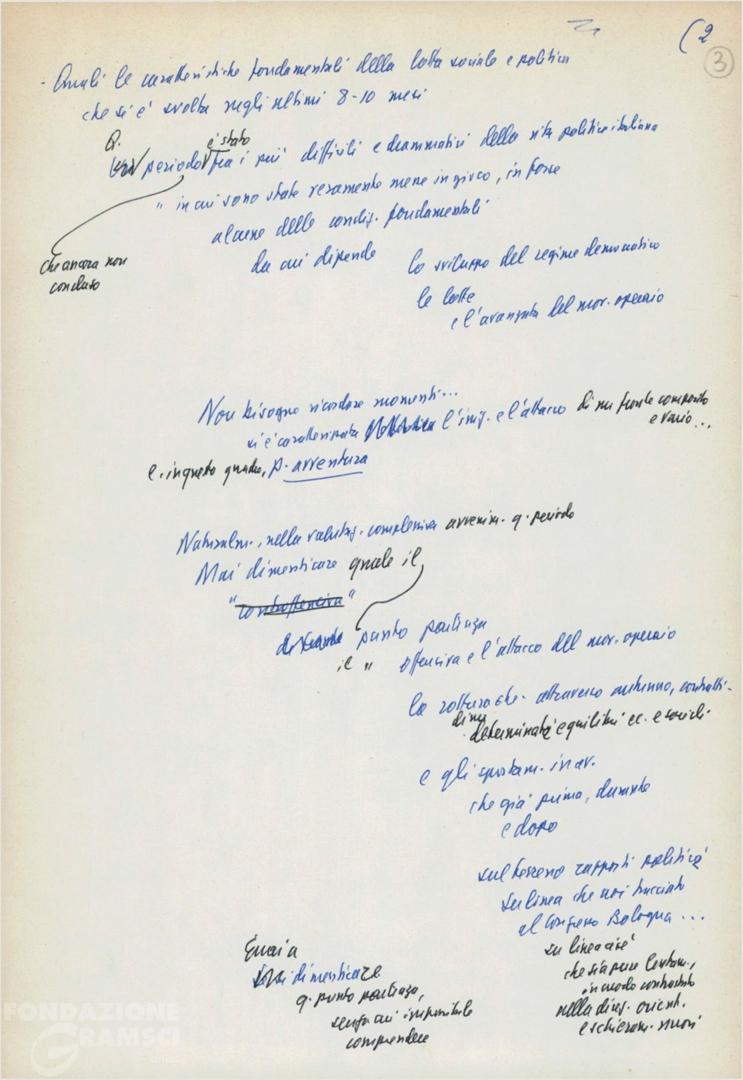 (2
3
- Quali le caratteristiche fondamentali della lotta sociale e politica
che si è svolta negli ultimi 8-10 mesi
Q. è stato
periodo tra i più difficili e drammatici della vita politica italiana
" in cui sono state veramente messe in gioco, in forse
alcune delle condiz. fondamentali
da cui dipende lo sviluppo del regime democratico
che ancora non
concluso
le lotte
e l'avanzata del mov. operaio
Non bisogna ricordare momenti...
si è caratterizzata l'iniz. e l'attacco di un fronte composito
e vario...
e, in questo quadro, p. avventura
Naturalm., nella valutaz. complessiva avvenim. q. periodo
Mai dimenticare quale il
"controffensiva"
punto partenza
il " offensiva e l'attacco del mov. operaio
la rottura che attraverso autunno, contratti-
di un
determinati equilibri ec. e sociali
e gli spostam. in av.
che già prima, durante
e dopo
sul terreno rapporti politici
su linea che noi tracciato
al Congresso Bologna...
su linea cioè
che sia pure lentam.,
in modo contrastato
nella direz. orient.
e schieram. nuovi
Guai a
dimenticare
q. punto partenza,
senza cui impossibile
comprendere
FONDAZIONE
GRAMSCI